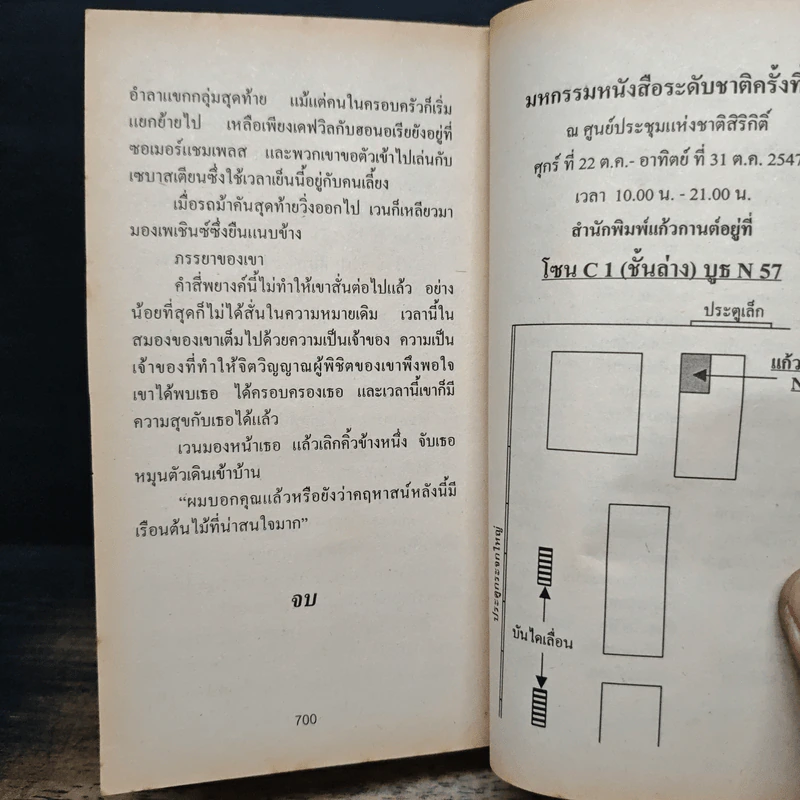 อำลาแขกกลุ่มสุดท้าย แม้แต่คนในครอบครัวก็เริ่ม
แยกย้ายไป เหลือเพียงเดฟวิลกับฮอนอเรียยังอยู่ที่
ซอเมอร์แชมเพลส และพวกเขาขอตัวเข้าไปเล่นกับ
เซบาสเตียนซึ่งใช้เวลาเย็นนี้อยู่กับคนเลี้ยง
เมื่อรถม้าคันสุดท้ายวิ่งออกไป เวนก็เหลียวมา
มองเพเชินซ์ซึ่งยืนแนบข้าง
ภรรยาของเขา
คำสี่พยางค์นี้ไม่ทำให้เขาสั่นต่อไปแล้ว อย่าง
น้อยที่สุดก็ไม่ได้สั่นในความหมายเดิม เวลานี้ใน
สมองของเขาเต็มไปด้วยความเป็นเจ้าของ ความเป็น
เจ้าของที่ทำให้จิตวิญญาณผู้พิชิตของเขาพึงพอใจ
เขาได้พบเธอ ได้ครอบครองเธอ และเวลานี้เขาก็มี
ความสุขกับเธอได้แล้ว
เวนมองหน้าเธอ แล้วเลิกคิ้วข้างหนึ่ง จับเธอ
หมุนตัวเดินเข้าบ้าน
“ผมบอกคุณแล้วหรือยังว่าคฤหาสน์หลังนี้มี
เรือนต้นไม้ที่น่าสนใจมาก”
จบ
700
มหกรรมหนังสือระดับชาติครั้งที่
ณ ศูนย์ประชุมแห่งชาติสิริกิติ์
ศุกร์ ที่ 22 ต.ค.- อาทิตย์ ที่ 31 ต.ค. 2547
เวลา 10.00 น. - 21.00 น.
สำนักพิมพ์แก้วกานต์อยู่ที่
โซน C 1 (ชั้นล่าง) บูธ N 57
ประตูเล็ก
แก้ว
N
ประตูกระจกใหญ่
บันไดเลื่อน